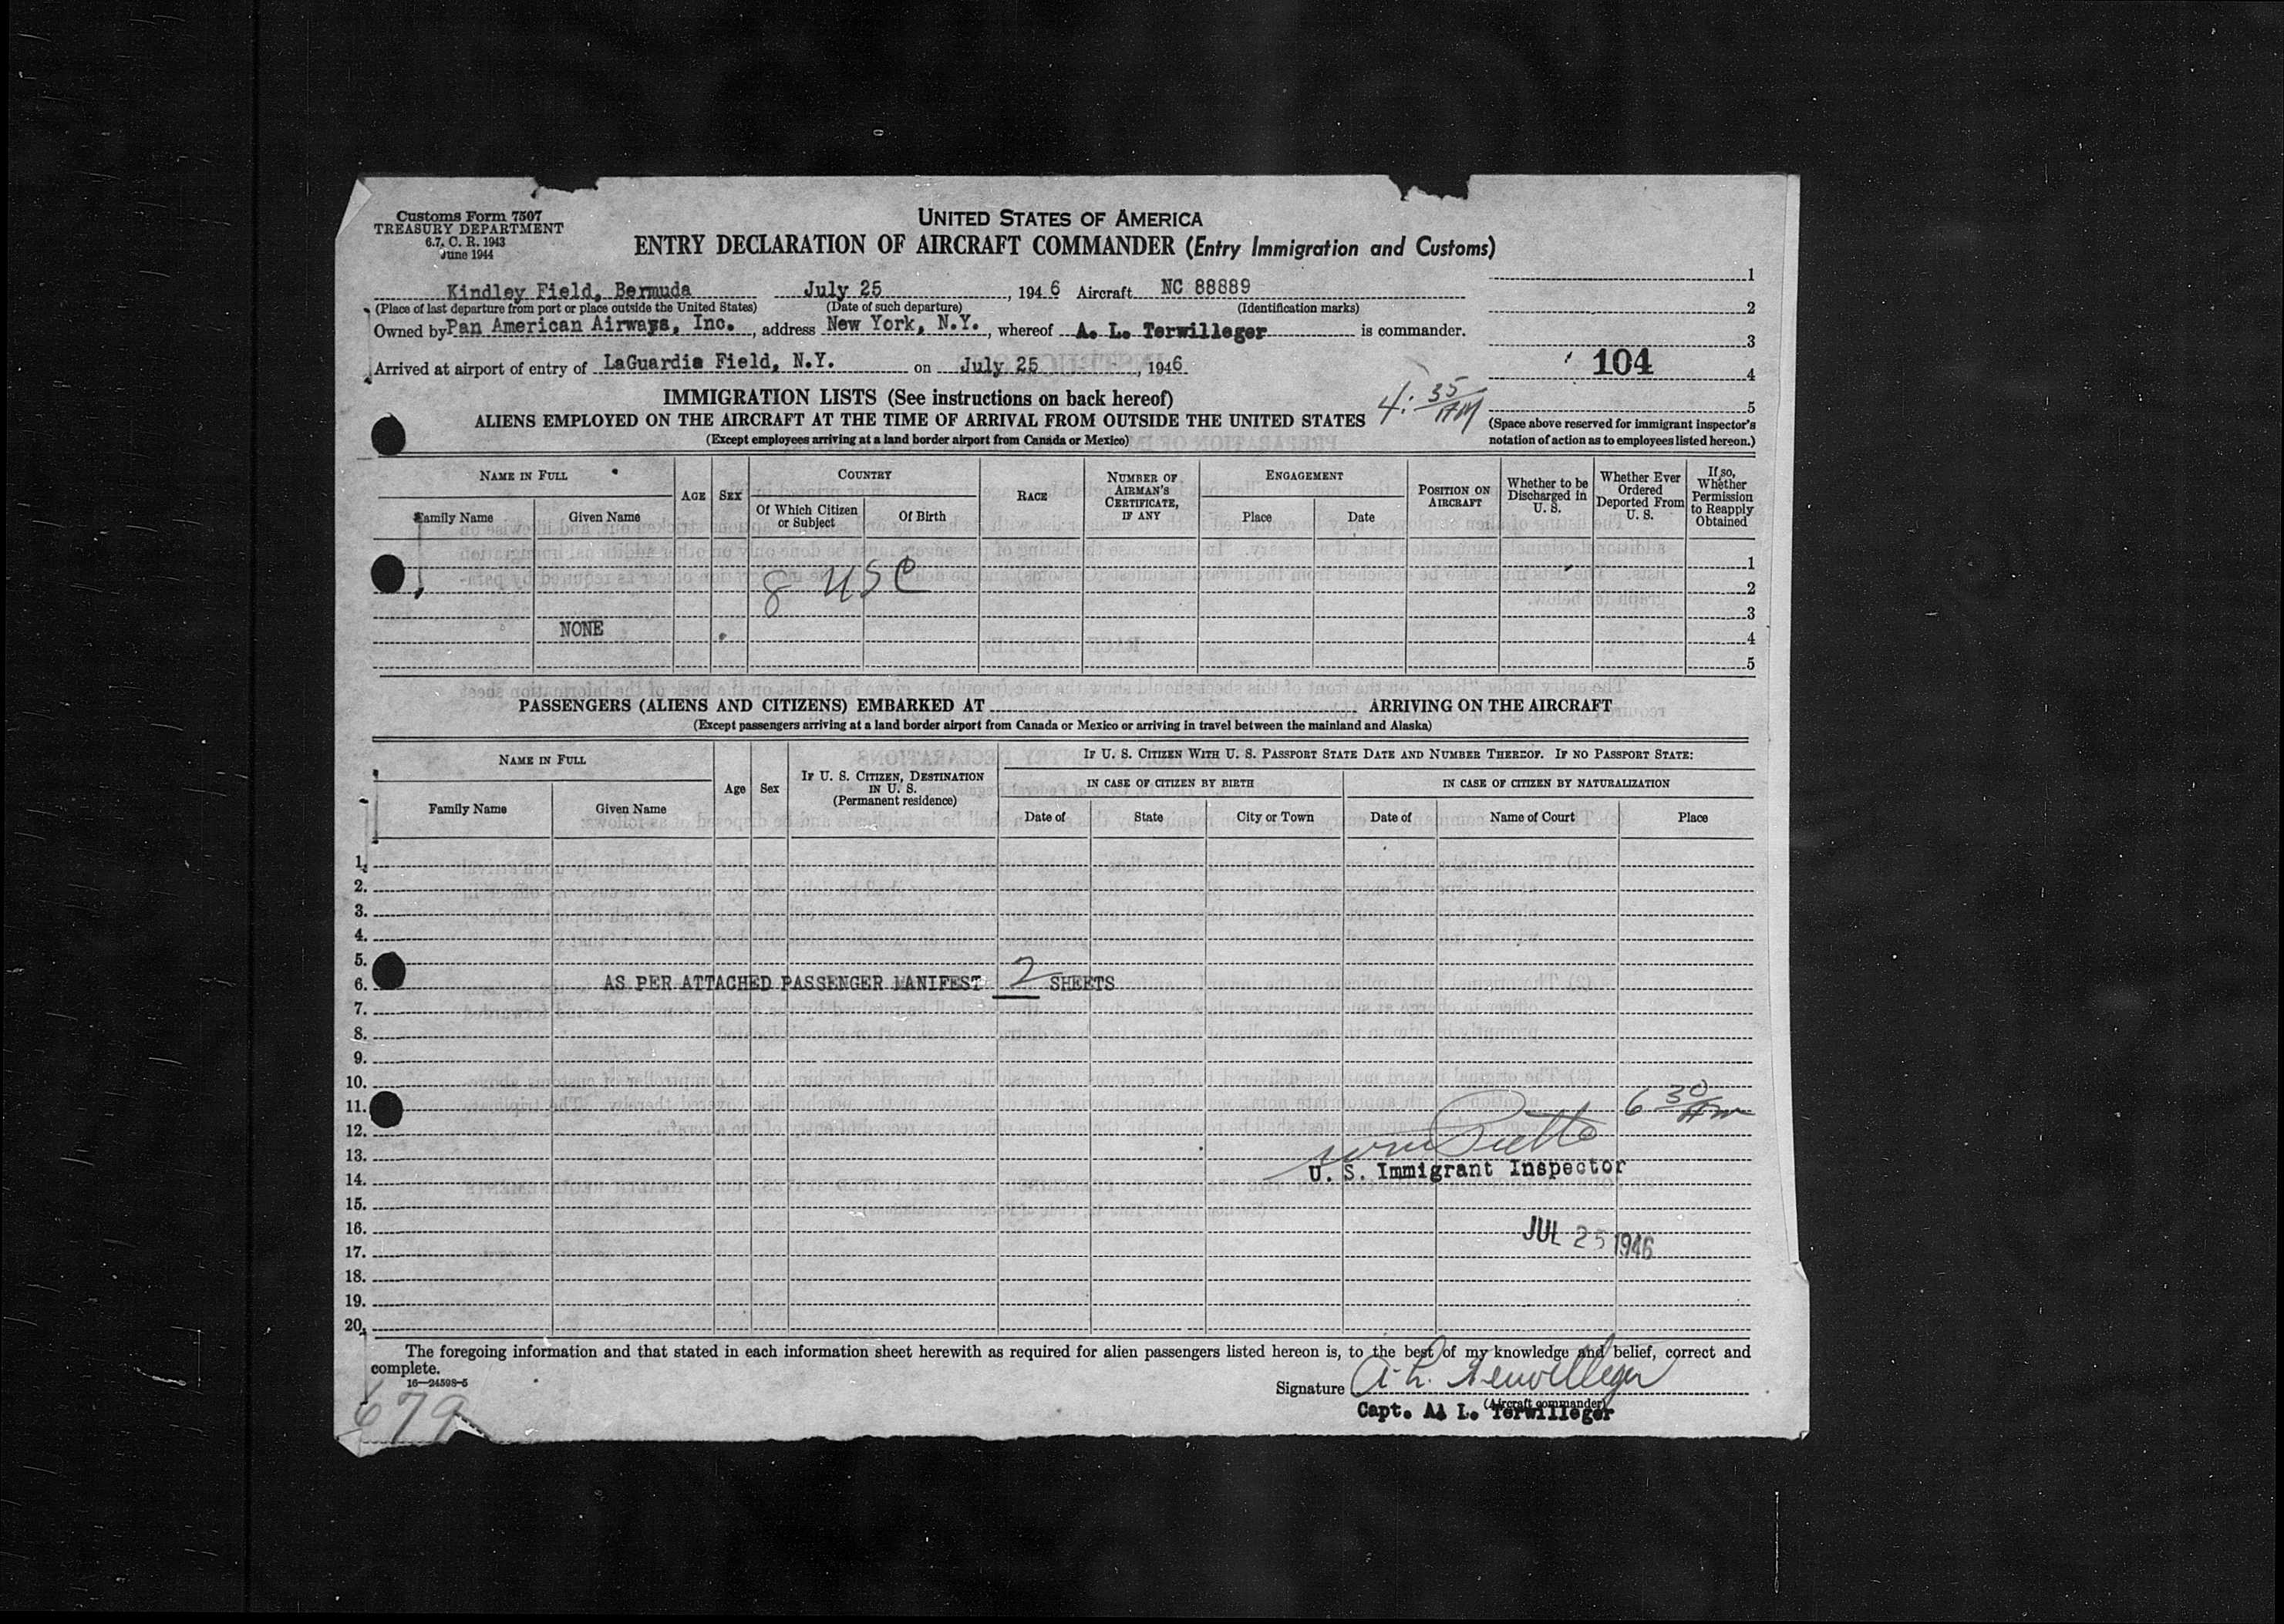 Customs Form 7507
TREASURY DEPARTMENT
6.7, C. R. 1943
June 1944
UNITED STATES OF AMERICA
ENTRY DECLARATION OF AIRCRAFT COMMANDER (Entry Immigration and Customs)
Kindley Field, Bermuda July 25, 1946 Aircraft NC 88889
(Place of last departure from port or place outside the United States) (Date of such departure) (Identification marks)
Owned by Pan American Airways, Inc., address New York, N.Y., whereof A. L. Terwilleger is commander.
Arrived at airport of entry of LaGuardia Field, N.Y. on July 25, 1946
1
2
3
104 4
5
(Space above reserved for immigrant inspector's
notation of action as to employees listed hereon.)
IMMIGRATION LISTS (See instructions on back hereof)
4:35 AM
ALIENS EMPLOYED ON THE AIRCRAFT AT THE TIME OF ARRIVAL FROM OUTSIDE THE UNITED STATES
(Except employees arriving at a land border airport from Canada or Mexico)
NAME IN FULL
Family Name Given Name
AGE SEX
COUNTRY
Of Which Citizen or Subject Of Birth
RACE
NUMBER OF AIRMAN'S CERTIFICATE, IF ANY
ENGAGEMENT
Place Date
POSITION ON AIRCRAFT
Whether to be Discharged in U. S.
Whether Ever Ordered Deported From U. S.
If so, Whether Permission to Reapply Obtained
1
8 USC 2
3
NONE 4
5
PASSENGERS (ALIENS AND CITIZENS) EMBARKED AT ARRIVING ON THE AIRCRAFT
(Except passengers arriving at a land border airport from Canada or Mexico or arriving in travel between the mainland and Alaska)
NAME IN FULL
Family Name Given Name
Age Sex
IF U. S. CITIZEN, DESTINATION IN U. S.
(Permanent residence)
IF U. S. CITIZEN WITH U. S. PASSPORT STATE DATE AND NUMBER THEREOF. IF NO PASSPORT STATE:
IN CASE OF CITIZEN BY BIRTH IN CASE OF CITIZEN BY NATURALIZATION
Date of State City or Town Date of Name of Court Place
1.
2.
3.
4.
5.
6. AS PER ATTACHED PASSENGER MANIFEST 2 SHEETS
7.
8.
9.
10.
11. 6 30 AM
12.
13.
14. U. S. Immigrant Inspector
15.
16. JUL 25 1946
17.
18.
19.
20.
The foregoing information and that stated in each information sheet herewith as required for alien passengers listed hereon is, to the best of my knowledge and belief, correct and
complete.
16—24598-5
Signature A. L. Terwilleger
(Aircraft commander)
Capt. A. L. Terwilleger
679